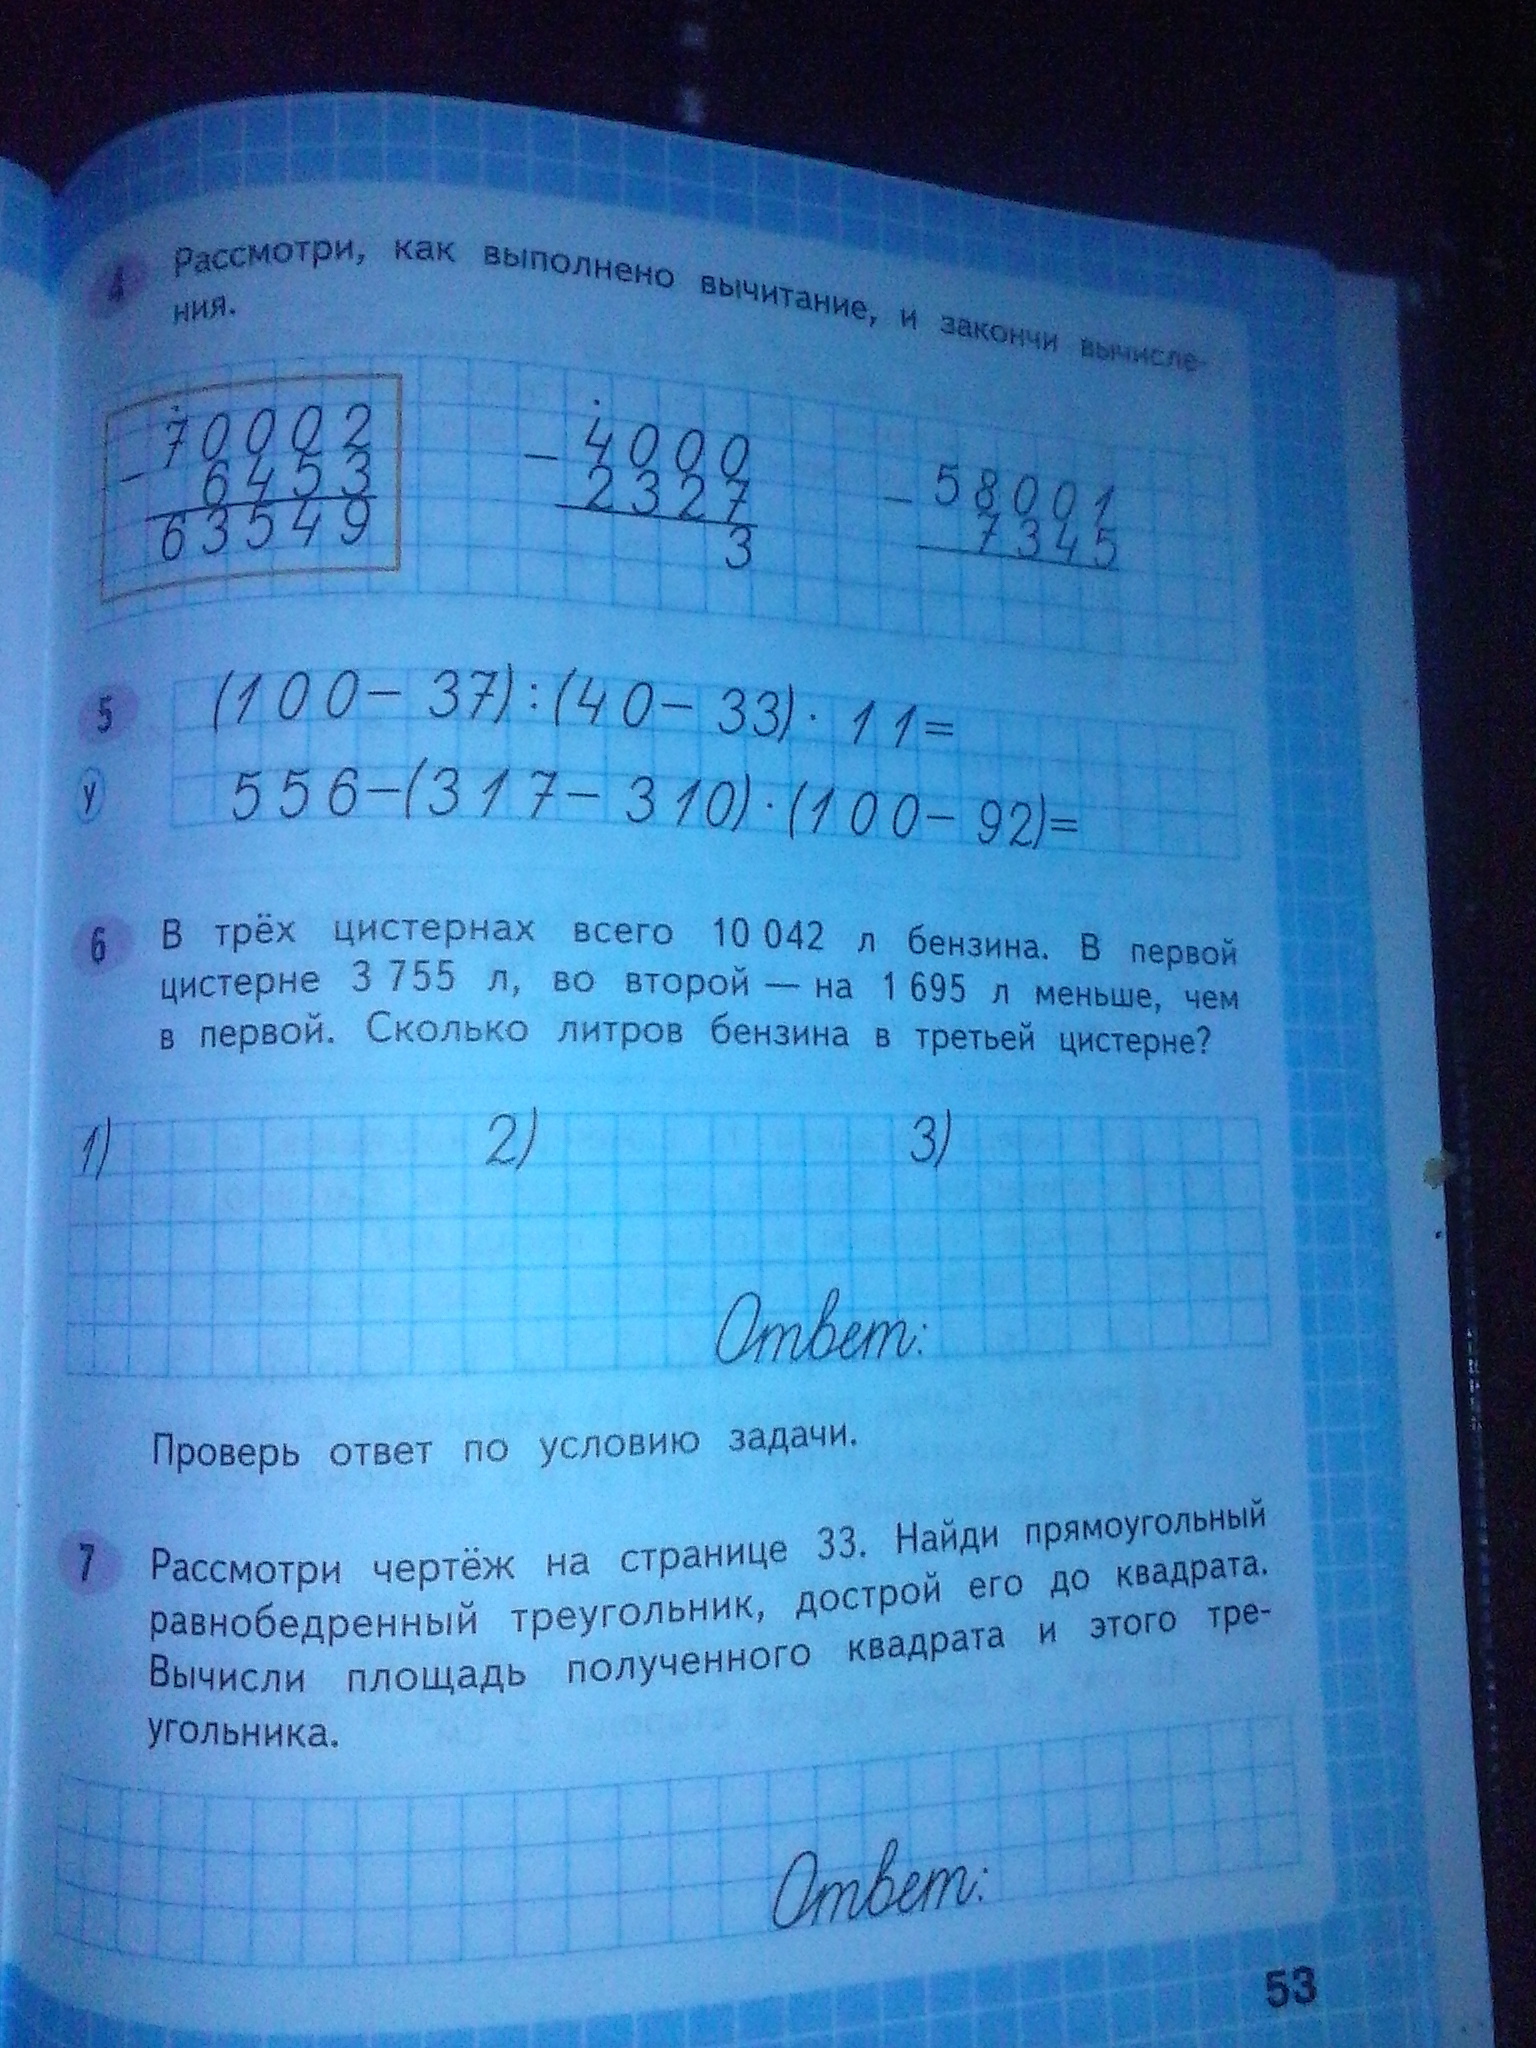 4 Рассмотри, как выполнено вычитание, и закончи вычисле-
ния.
70002 4000 58001
- 6453 - 2327 - 7345
63549 3
5 (100 – 37) : (40 – 33) · 11 =
У 556 – (317 – 310) · (100 – 92) =
6 В трёх цистернах всего 10 042 л бензина. В первой
цистерне 3 755 л, во второй — на 1 695 л меньше, чем
в первой. Сколько литров бензина в третьей цистерне?
1) 2) 3)
Ответ:
Проверь ответ по условию задачи.
7 Рассмотри чертёж на странице 33. Найди прямоугольный
равнобедренный треугольник, дострой его до квадрата.
Вычисли площадь полученного квадрата и этого тре-
угольника.
Ответ:
53